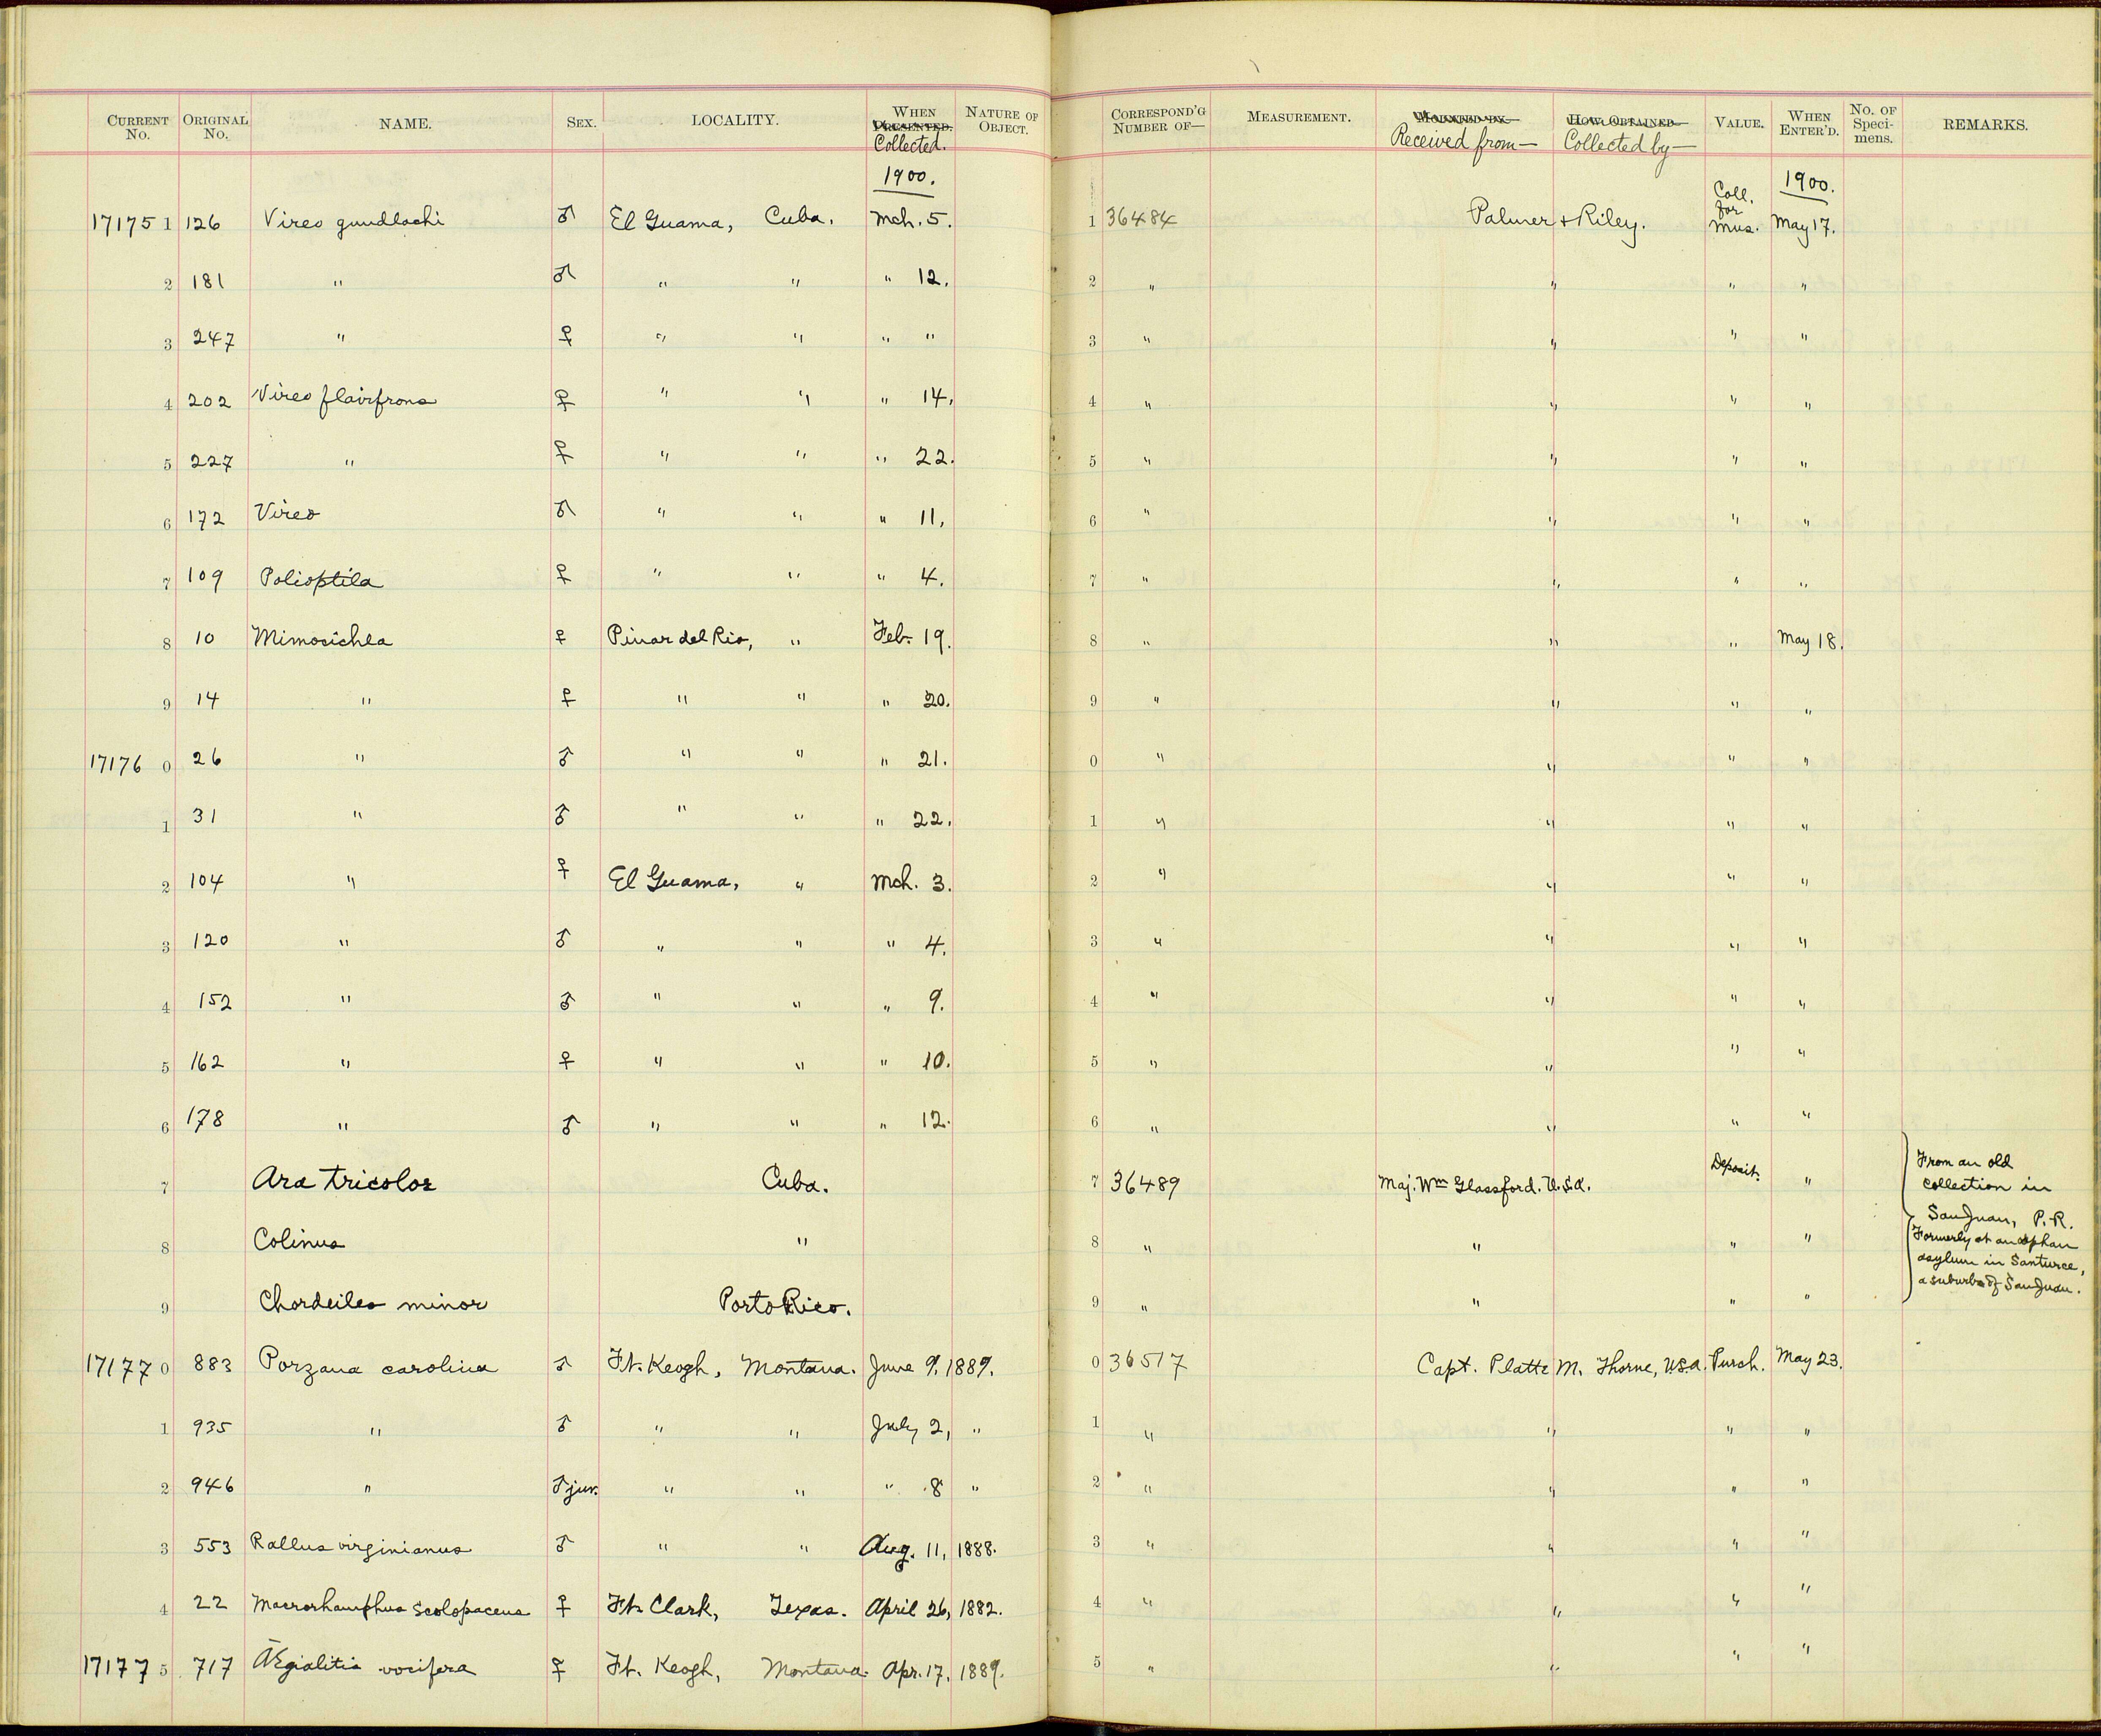 CURRENT No. ORIGINAL No. NAME. SEX. LOCALITY. WHEN PRESENTED. Collected. NATURE OF OBJECT. CORRESPOND'G NUMBER OF— MEASUREMENT. Received from— HOW OBTAINED. Collected by— VALUE. WHEN ENTER'D. No. OF Speci- mens. REMARKS.
1900. 1900.
17175 1 126 Vireo gundlachi ♂ El Guama, Cuba. Mch. 5. 1 36484 Palmer + Riley. Coll. for Mus. May 17.
2 181 " ♂ " " " 12. 2 " " " "
3 247 " ♀ " " " " 3 " " " "
4 202 Vireo flavifrons ♀ " " " 14. 4 " " " "
5 227 " ♀ " " " 22. 5 " " " "
6 172 Vireo ♂ " " " 11, 6 " " " "
7 109 Polioptila ♀ " " " 4. 7 " " " "
8 10 Mimocichla ♀ Pinar del Rio, " Feb. 19. 8 " " " May 18.
9 14 " ♀ " " " 20. 9 " " " "
17176 0 26 " ♂ " " " 21. 0 " " " "
1 31 " ♂ " " " 22. 1 " " " "
2 104 " ♀ El Guama, " Mch. 3. 2 " " " "
3 120 " ♂ " " " 4. 3 " " " "
4 152 " ♂ " " " 9. 4 " " " "
5 162 " ♀ " " " 10. 5 " " " "
6 178 " ♂ " " " 12. 6 " " " "
7 Ara tricolor Cuba. 7 36489 Maj. Wm Glassford. U.S.A. Deposit. " From an old
collection in
San Juan, P.R.
8 Colinus " 8 " " " " Formerly at an orphan
asylum in Santurce,
a suburb of San Juan.
9 Chordeiles minor Porto Rico. 9 " " " "
17177 0 883 Porzana carolina ♂ Ft. Keogh, Montana. June 9, 1889. 0 36517 Capt. Platte M. Thorne, U.S.A. Purch. May 23.
1 935 " ♂ " " July 2, " 1 " " " "
2 946 " ♂ juv. " " " 8 " 2 " " " "
3 553 Rallus virginianus ♂ " " Aug. 11, 1888. 3 " " " "
4 22 Macrorhamphus scolopaceus ♀ Ft. Clark, Texas. April 26, 1882. 4 " " " "
17177 5 717 Ægialitis vocifera ♀ Ft. Keogh, Montana. Apr. 17, 1889. 5 " " " "